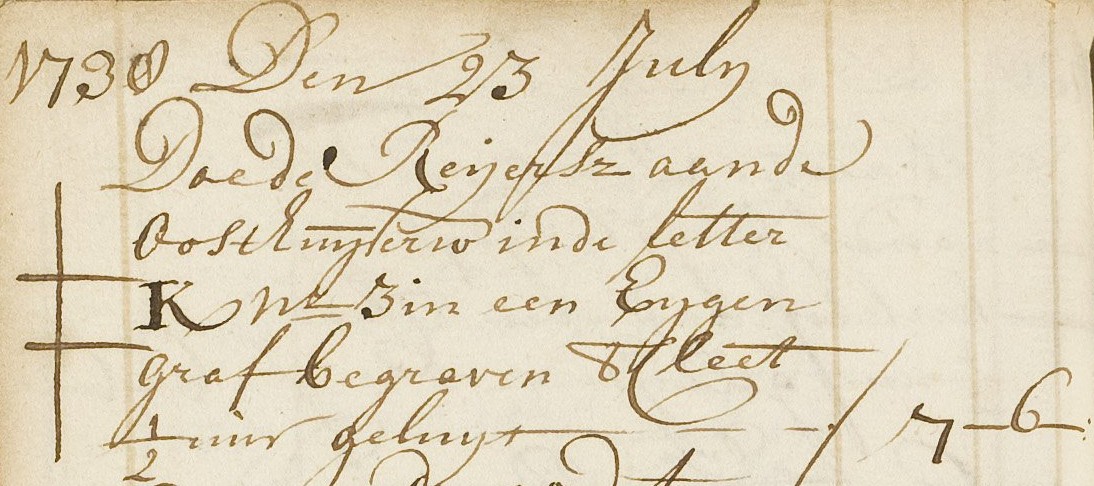 1738 Den 23 July
Doede Reijersz aande
Oosthuyserw inde letter
K No 3 in een Eygen
graf begraven & Cleet
1/2 uur geluyt - - - / 7-6-: